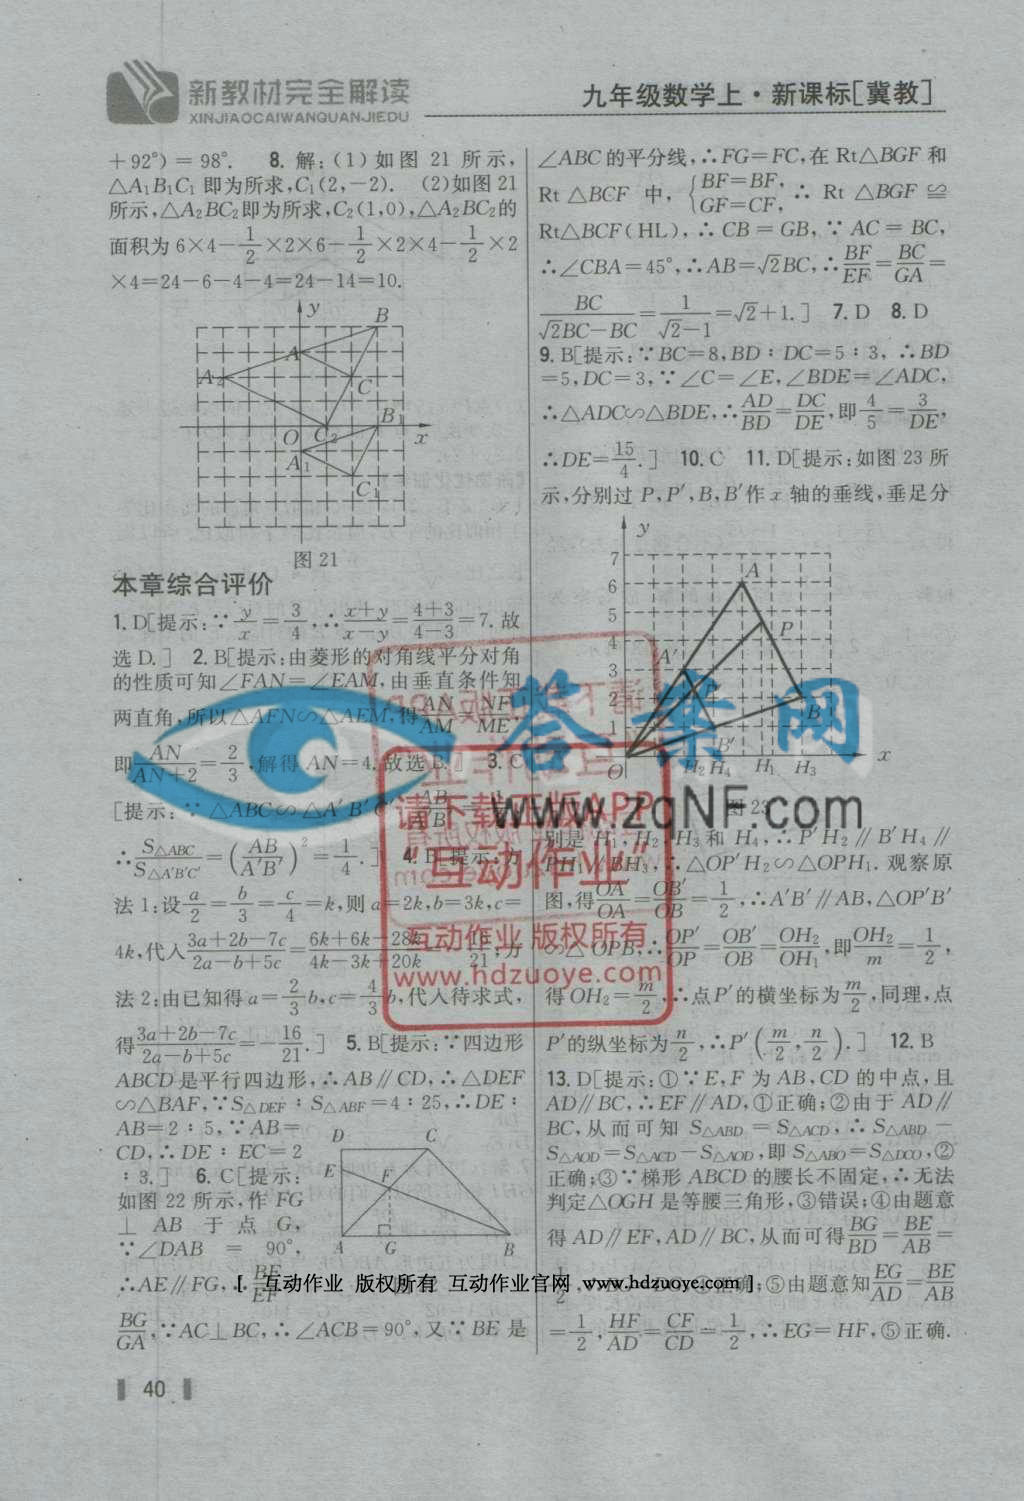 新教材完全解读
XINJIAOCAIWANQUANJIEDU
九年级数学上·新课标[冀教]
+92°)=98°. 8.解:(1)如图 21 所示,
△A₁B₁C₁ 即为所求,C₁(2,-2). (2)如图 21
所示,△A₂BC₂即为所求,C₂(1,0),△A₂BC₂的
面积为 6×4-1/2×2×6-1/2×2×4-1/2×2
×4=24-6-4-4=24-14=10.
y
B
A
A₂
C
B₁
O
C₂
x
A₁
C₁
图 21
本章综合评价
1.D[提示:∵y/x=3/4,∴(x+y)/(x-y)=(4+3)/(4-3)=7.故
选D.] 2.B[提示:由菱形的对角线平分对角
的性质可知∠FAN=∠EAM,由垂直条件知
两直角,所以△AFN∽△AEM,得AN/AM=NF/ME,
即AN/(AN+2)=2/3,解得 AN=4.故选B.] 3.C
[提示:∵△ABC∽△A′B′C′
∴S△ABC/S△A′B′C′=(AB/A′B′)²=1/4.] 4.D[提示:方
法 1:设a/2=b/3=c/4=k,则 a=2k,b=3k,c=
4k,代入(3a+2b-7c)/(2a-b+5c)=(6k+6k-28k)/(4k-3k+20k)
法 2:由已知得 a=2/3b,c=4/3b,代入待求式,
得(3a+2b-7c)/(2a-b+5c)=-16/21.] 5.B[提示:∵四边形
ABCD是平行四边形,∴AB∥CD,∴△DEF
∽△BAF,∵S△DEF:S△ABF=4:25,∴DE:
AB=2:5,∵AB=
CD,∴DE:EC=2
:3.] 6.C[提示:
如图 22 所示,作 FG
⊥AB 于点 G,
∵∠DAB=90°,
∴AE∥FG,∴BE/EF=
D
C
E
F
A
G
B
BG/GA,∵AC⊥BC,∴∠ACB=90°,又∵BE 是
∠ABC的平分线,∴FG=FC,在 Rt△BGF 和
Rt△BCF 中,{BF=BF, GF=CF, ∴ Rt△BGF≌
Rt△BCF(HL),∴CB=GB,∵AC=BC,
∴∠CBA=45°,∴AB=√2BC,∴BF/EF=BC/GA=
BC/(√2BC-BC)=1/(√2-1)=√2+1.] 7.D 8.D
9.B[提示:∵BC=8,BD:DC=5:3,∴BD
=5,DC=3,∵∠C=∠E,∠BDE=∠ADC,
∴△ADC∽△BDE,∴AD/BD=DC/DE,即4/5=3/DE,
∴DE=15/4.] 10.C 11.D[提示:如图 23 所
示,分别过 P,P′,B,B′作 x 轴的垂线,垂足分
y
7
6
5
4
3
2
1
A
P
A′
B
B′
O
H₂ H₄ H₁ H₃
x
图 23
别是 H₁,H₂,H₃和 H₄,∴P′H₂∥B′H₄∥
PH₁∥BH₃,∴△OP′H₂∽△OPH₁.观察原
图,得OA′/OA=OB′/OB=1/2,∴A′B′∥AB,△OP′B′
∽△OPB,∴OP′/OP=OB′/OB=OH₂/OH₁,即OH₂/m=1/2,
得OH₂=m/2,∴点P′的横坐标为m/2,同理,点
P′的纵坐标为n/2,∴P′(m/2,n/2).] 12.B
13.D[提示:①∵E,F 为 AB,CD 的中点,且
AD∥BC,∴EF∥AD,①正确;②由于AD∥
BC,从而可知 S△ABD=S△ACD,∴S△ABD-
S△AOD=S△ACD-S△AOD,即S△ABO=S△DCO,②
正确;③∵梯形 ABCD 的腰长不固定,∴无法
判定△OGH是等腰三角形,③错误;④由题意
得AD∥EF,AD∥BC,从而可得BG/BD=BE/AB=
1/2,∴BG=DG,④正确;⑤由题意知EG/AD=BE/AB
=1/2,HF/AD=CF/CD=1/2,∴EG=HF,⑤正确.
40
答案网
www.zqNF.com
请下载正版APP
“互动作业”
互动作业 版权所有
www.hdzuoye.com
[ 互动作业 版权所有 互动作业官网 www.hdzuoye.com ]